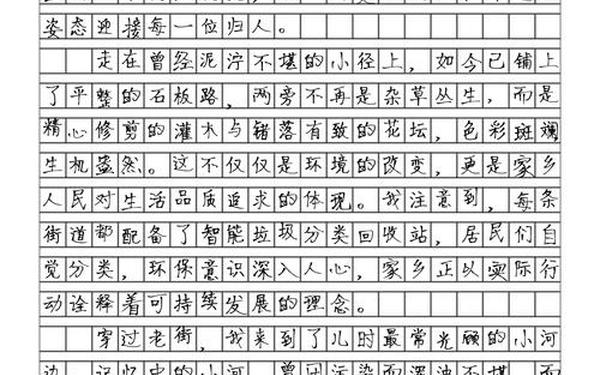 姿态迎接每一位归人。
走在曾经泥泞不堪的小径上，如今已铺上
了平整的石板路，两旁不再是杂草丛生，而是
精心修剪的灌木与错落有致的花坛，色彩斑斓
生机盎然。这不仅仅是环境的改变，更是家乡
人民对生活品质追求的体现。我注意到，每条
街道都配备了智能垃圾分类回收站，居民们自
觉分类，环保意识深入人心，家乡正以实际行
动诠释着可持续发展的理念。
穿过老街，我来到了儿时最常光顾的小河
边，记忆中的小河，曾因污染而浑浊不堪，而